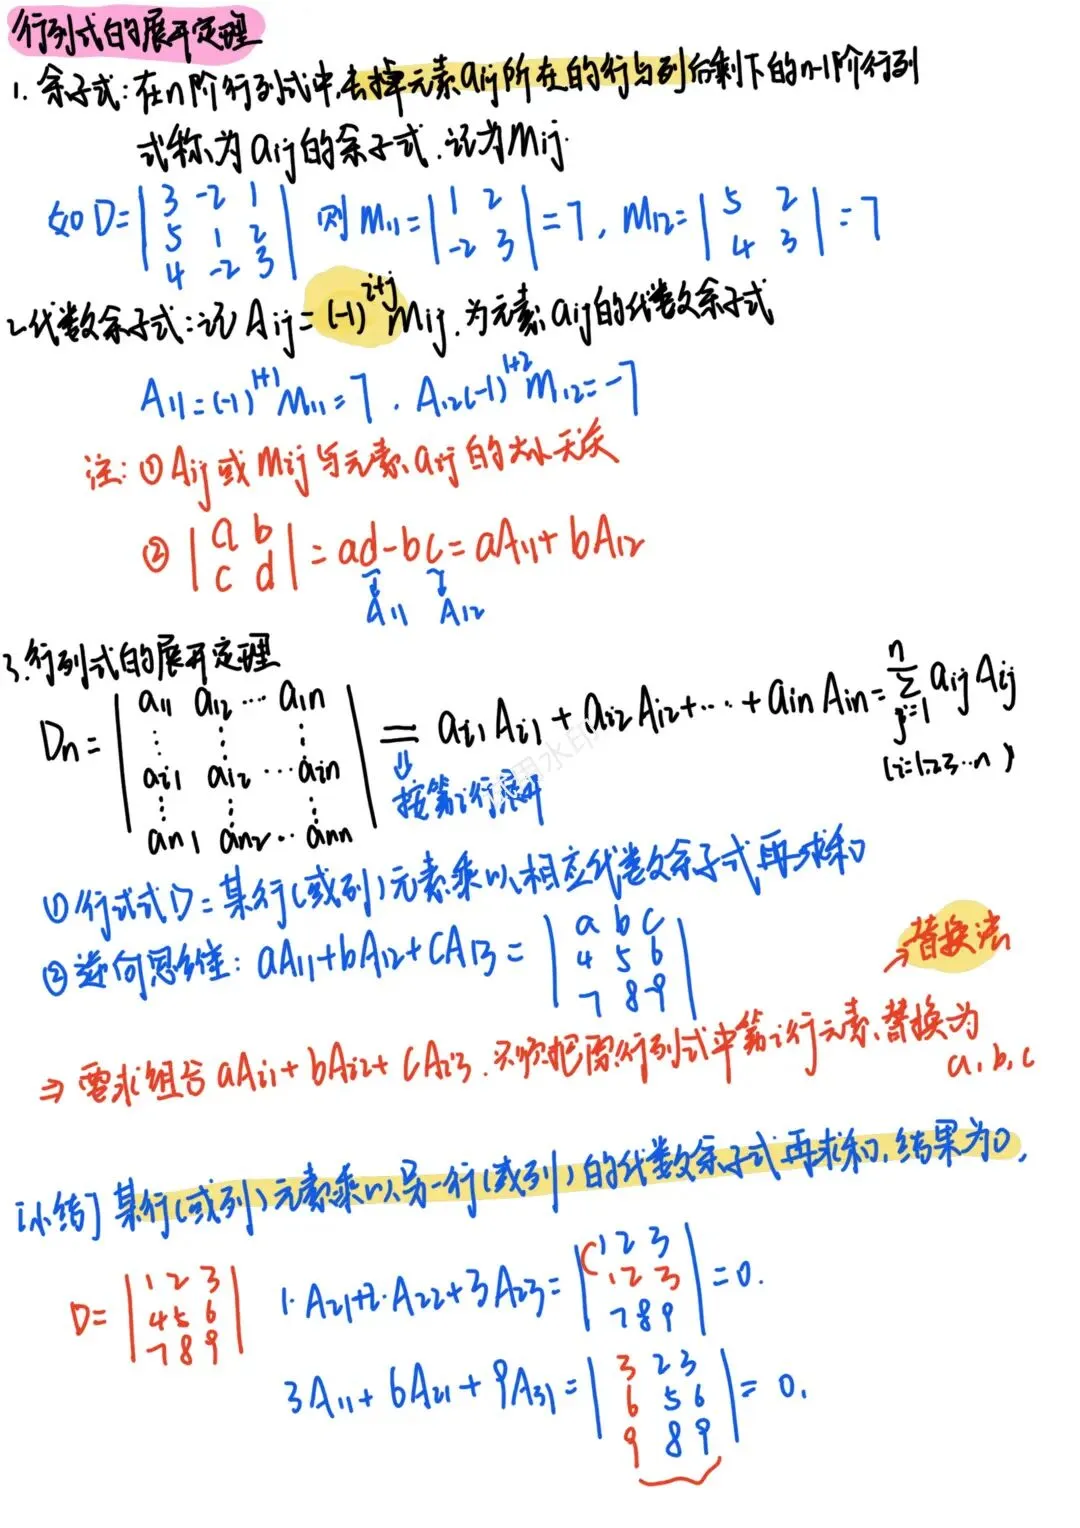 行列式的展开定理
1. 余子式:在n阶行列式中,去掉元素aij所在的行与列后剩下的n-1阶行列
式称为aij的余子式.记为Mij.
如D= | 3 -2 1 | 则M11= | 1 2 | =7, M12= | 5 2 | =7
| 5 1 2 | | -2 3 | | 4 3 |
| 4 -2 3 |
2.代数余子式:记Aij=(-1)^{i+j}Mij.为元素aij的代数余子式
A11=(-1)^{1+1}M11=7. A12(-1)^{1+2}M12=-7
注:①Aij或Mij与元素aij的大小无关
② | a b | =ad-bc=aA11+bA12
| c d |
A11 A12
3.行列式的展开定理
Dn= | a11 a12 … a1n | = ai1Ai1+ai2Ai2+…+ainAin= n∑j=1 aijAij
| ⋮ ⋮ ⋮ | (i=1.2.3…n)
| ai1 ai2 … ain | ⇓ 按第i行展开
| ⋮ ⋮ ⋮ |
| an1 an2 … ann |
试用水印
①行式式D=某行(或列)元素乘以相应代数余子式再求和
②逆向思维: aA11+bA12+CA13= | a b c |
| 4 5 6 |
| 7 8 9 |
→替换法
⇒ 要求组合aAi1+bAi2+CAi3.只需把原行列式中第i行元素替换为
a,b,c
[小结] 某行(或列)元素乘以另一行(或列)的代数余子式再求和,结果为0,
D= | 1 2 3 | 1·A21+2·A22+3A23= | 1 2 3 | =0.
| 4 5 6 | | 1 2 3 |
| 7 8 9 | | 7 8 9 |
3A11+6A21+9A31= | 3 2 3 | =0.
| 6 5 6 |
| 9 8 9 |